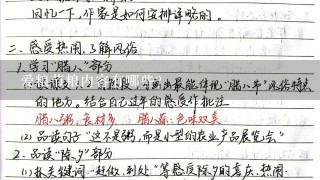 回忆一下，作家是如何安排详略的。
二、感受热闹，了解风俗
1.学习"腊八"部分
爱粮节粮内容有哪些?
出最能体现"腊八节"风俗特点
的地方。结合自己过年的感受作批注
腊八粥：食材多 腊八蒜：色味双美
(2)品读句子"这不是粥，而是小型的农业产品展览会"
2.品读"除夕"部分
(1)抓关键词"赶做、到处"等感受除夕的喜庆、热闹